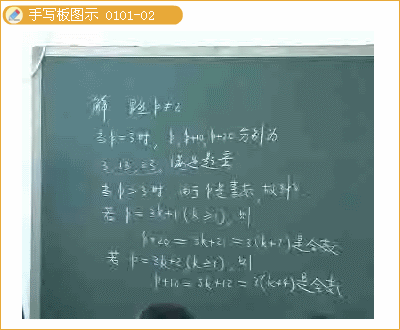 手写板图示 0101-02
解 显然p≠2
当p=3时, p, p+10, p+20分别为
3, 13, 23, 满足题意
当p>3时 由于p是素数, 故
若 p=3k+1(k≥1), 则
p+20=3k+21=3(k+7)是合数
若 p=3k+2(k≥1), 则
p+10=3k+12=3(k+4)是合数